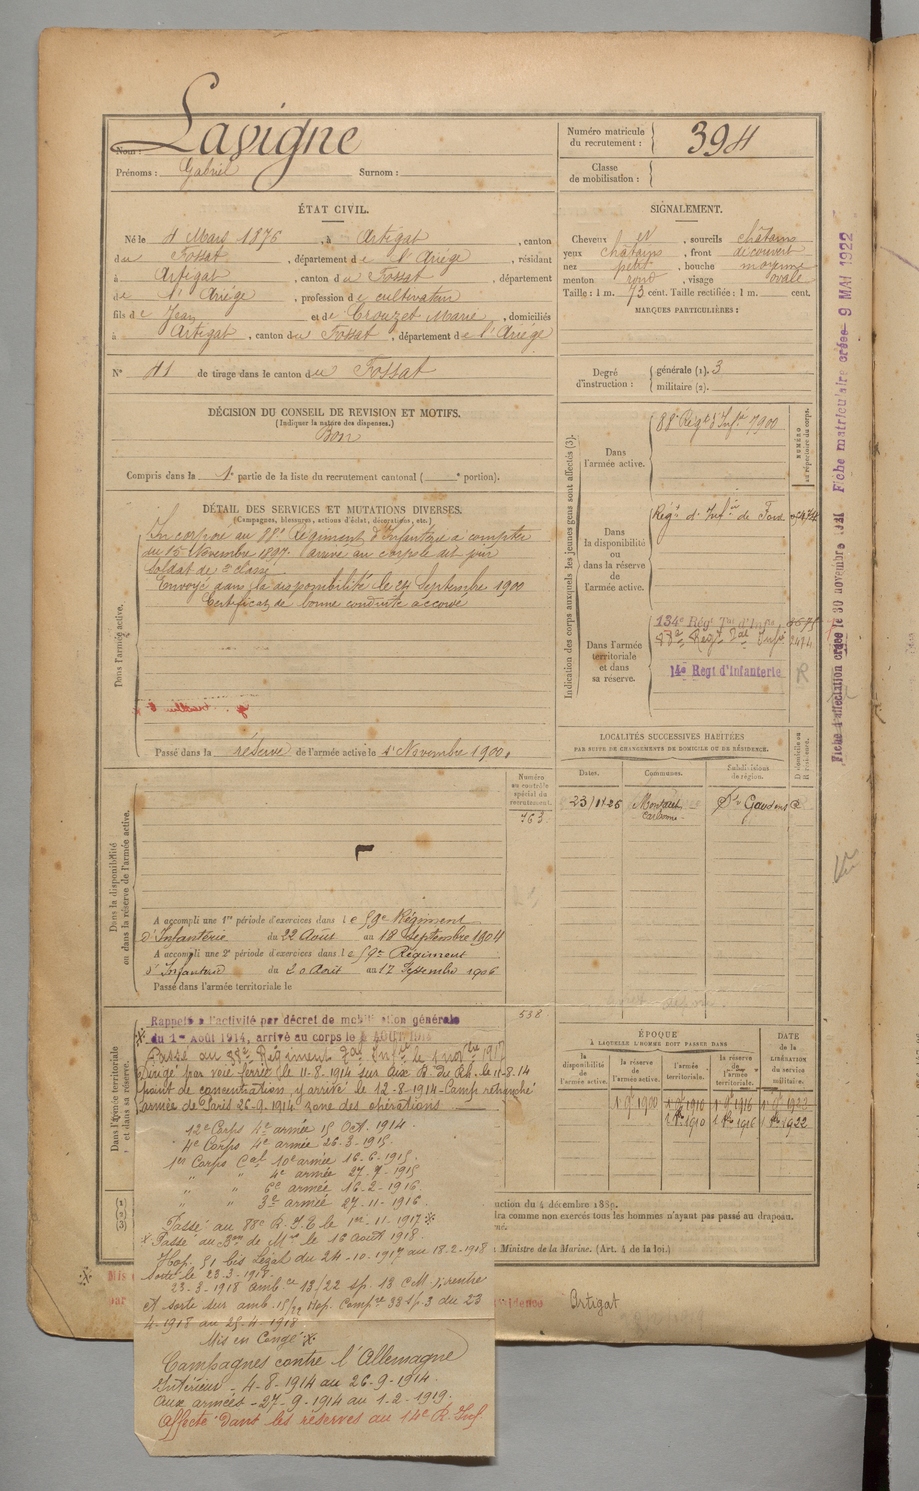 Nom : Lavigne
Prénoms : Gabriel Surnom :
Numéro matricule du recrutement : 394
Classe de mobilisation :
ÉTAT CIVIL.
Né le 4 Mars 1876, à Artigat, canton
du Fossat, département de l'Ariége, résidant
à Artigat, canton du Fossat, département
de l'Ariége, profession de cultivateur
fils de Jean et de Crouzet Marie, domiciliés
à Artigat, canton du Fossat, département de l'Ariége
SIGNALEMENT.
Cheveux et, sourcils châtains
yeux châtains, front découvert
nez petit, bouche moyenne
menton rond, visage ovale
Taille : 1 m. 73 cent. Taille rectifiée : 1 m. cent.
MARQUES PARTICULIÈRES :
N° 41 de tirage dans le canton du Fossat
Degré d'instruction : générale (1). 3
militaire (2).
DÉCISION DU CONSEIL DE REVISION ET MOTIFS.
(Indiquer la nature des dispenses.)
Bon
Compris dans la 1e partie de la liste du recrutement cantonal ( e portion).
DÉTAIL DES SERVICES ET MUTATIONS DIVERSES.
(Campagnes, blessures, actions d'éclat, décorations, etc.)
Dans l'armée active.
Incorporé au 88e Régiment d'Infanterie à compter
du 15 Novembre 1897. arrivé au corps le dit jour
soldat de 2e classe
Envoyé dans la disponibilité le 24 Septembre 1900
Certificat de bonne conduite accordé
Passé dans la réserve de l'armée active le 1er Novembre 1900.
Indication des corps auxquels les jeunes gens sont affectés (3).
NUMÉRO au répertoire du corps.
Dans l'armée active.
88e Régt d'Infie 7900
Dans la disponibilité ou dans la réserve de l'armée active.
Régt d'Infie de Foix
Dans l'armée territoriale et dans sa réserve.
134e Régt Tal d'Infie
Régt Tal Infie
14e Régt d'Infanterie R
Fiche matriculaire créée 9 MAI 1922
Fiche d'affectation créée le 30 novembre
LOCALITÉS SUCCESSIVES HABITÉES
PAR SUITE DE CHANGEMENTS DE DOMICILE OU DE RÉSIDENCE.
Dates. Communes. Subdivisions de région. D domicile ou R résidence.
Montaut
St Gaudens
Dans la disponibilité ou dans la réserve de l'armée active.
Numéro au contrôle spécial du recrutement.
763
A accompli une 1re période d'exercices dans le 59e Régiment
d'Infanterie du 22 Août au 18 Septembre 1904
A accompli une 2e période d'exercices dans le 59e Régiment
d'Infanterie du 20 Août au 17 Septembre 1906
Passé dans l'armée territoriale le
538
Dans l'armée territoriale et dans sa réserve.
Rappelé à l'activité par décret de mobilisation générale
du 1er Août 1914, arrivé au corps le AOUT 1914
Dirigé par voie ferrée le 11-8-14 sur
point de concentration y arrivé le 12-8-1914 - Camp retranché
armée de Paris 26-9-1914 zone des opérations
12e Corps 4e armée 15 Oct. 1914.
4e Corps 4e armée 26-3-1915.
1er Corps Cal 10e armée 16-6-1915.
" " 4e armée 27-9-1915
" " 6e armée 16-2-1916.
" " 3e armée 27-11-1916.
Passé au 88e R.I.T. le 1er-11-1917
x Passé au le 16 août 1918.
Hop. 51 bis du 24-10-1917 au 18-2-1918
sorti le 23-3-1918.
23-3-1918 ambce 13/22 Sp. 13 CM. rentré
et sorti sur amb. Hop. Compre 33 Sp. 3 du 23
4-1918 au 25-4-1918
Mis en Congé
Campagnes contre l'Allemagne
Intérieur - 4-8-1914 au 26-9-1914.
aux armées - 27-9-1914 au 1-2-1919.
Affecté dans les réserves au 14e R. Inf.
ÉPOQUE
À LAQUELLE L'HOMME DOIT PASSER DANS
la disponibilité de l'armée active. la réserve de l'armée active. l'armée territoriale. la réserve de l'armée territoriale.
DATE DE LA LIBÉRATION du service militaire.
1 9bre 1900 1 9bre 1910 1 9bre 1916 1 9bre 1923
1 1910 1 1916 1 1922
ction du 4 décembre 1889.
dra comme non exercés tous les hommes n'ayant pas passé au drapeau.
Ministre de la Marine. (Art. 4 de la loi.)
Mis
par
sidence Artigat